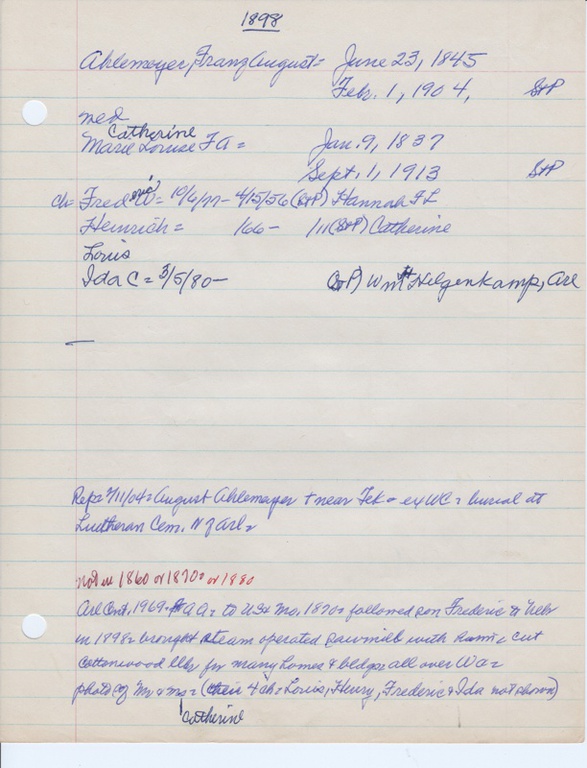 1898
Ahlemeyer, Franz August = June 23, 1845
Febr. 1, 1904, StP
med
Catherine
Marie Louise FA = Jan. 9, 1837
Sept. 1, 1913 StP
ch = Fred W = 10/6/77 - 4/5/56 (StP) Hannah FL
Heinrich = 166 - /11 (StP) Catherine
Louis
Ida C = 3/5/80 - (StP) Wm H Hilgenkamp, Arl
Rep = 2/11/04 = August Ahlemeyer + near Tek = ex WC = burial at
Ludtheran Cem. N of Arl =
not in 1860 or 1870 = or 1880
Arl Cent. 1969 = FAA = to US & Mo. 1870 = followed son Frederic to Nebr
in 1898 = brought steam operated sawmill with = cut
cottonwood lbr for many homes & bldgs all over Wa =
photo of Mr & Mrs = (their 4 ch = Louis, Henry, Frederic & Ida not shown)
Catherine